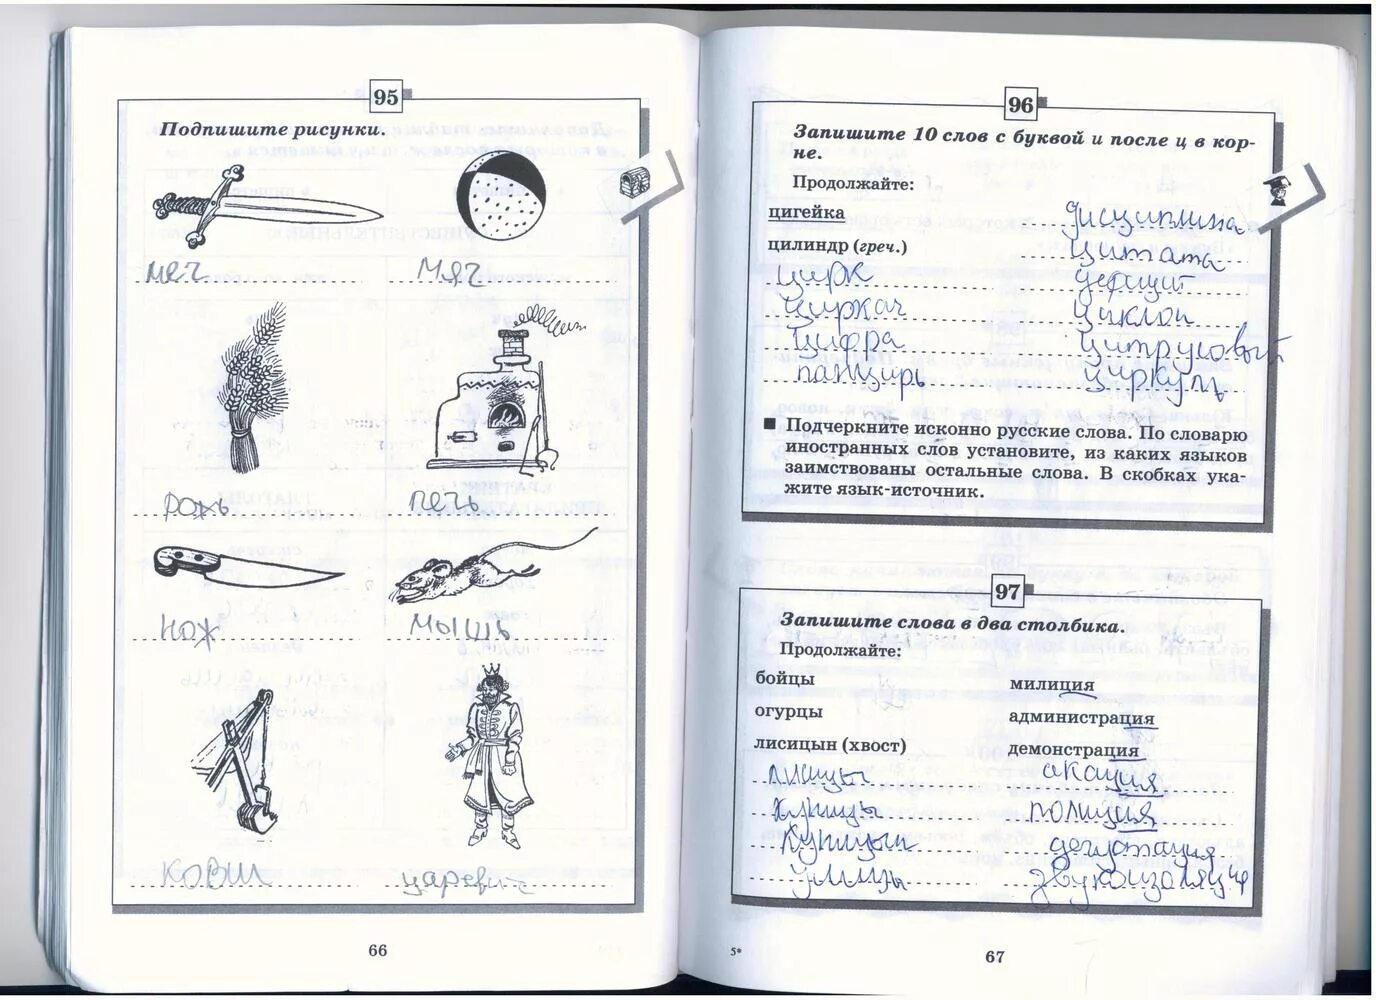 95
Подпишите рисунки.
меч
мяч
рожь
печь
нож
мышь
ковш
царевич
66
96
Запишите 10 слов с буквой и после ц в кор-
не.
Продолжайте:
цигейка
дисциплина
цилиндр (греч.)
цитата
цирк
дефицит
циркач
циклон
цифра
цитрусовый
панцирь
циркуль
Подчеркните исконно русские слова. По словарю
иностранных слов установите, из каких языков
заимствованы остальные слова. В скобках ука-
жите язык-источник.
97
Запишите слова в два столбика.
Продолжайте:
бойцы
милиция
огурцы
администрация
лисицын (хвост)
демонстрация
акация
полиция
дегустация
улицы
5*
67